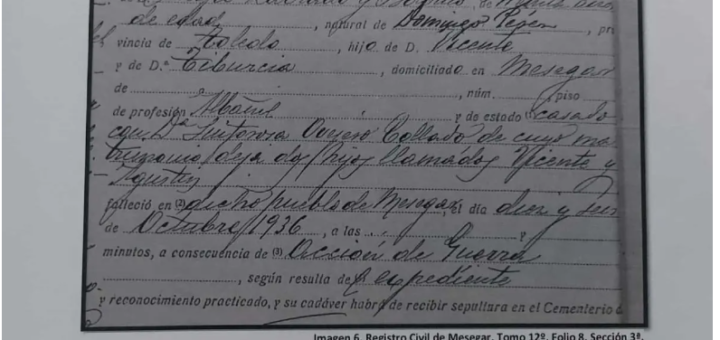 y de treinta años
de edad, natural de Domingo Perez, pro
vincia de Toledo, hijo de D. Vicente
y de D.ª Tiburcia, domiciliado en Mesegar
de, núm., piso
de profesión Albañil y de estado casado
con Dª Collado de cuyo ma
trimonio deja dos hijos llamados Vicente y
Agustin
falleció en (2) dicho pueblo de Mesegar, el día diez y seis
de Octubre 1936, a las y
minutos, a consecuencia de (3) Acción de Guerra
, según resulta de expediente
y reconocimiento practicado, y su cadáver habrá de recibir sepultura en el Cementerio d
Imagen 6. Registro Civil de Mesegar. Tomo 12º. Folio 8. Sección 3ª.